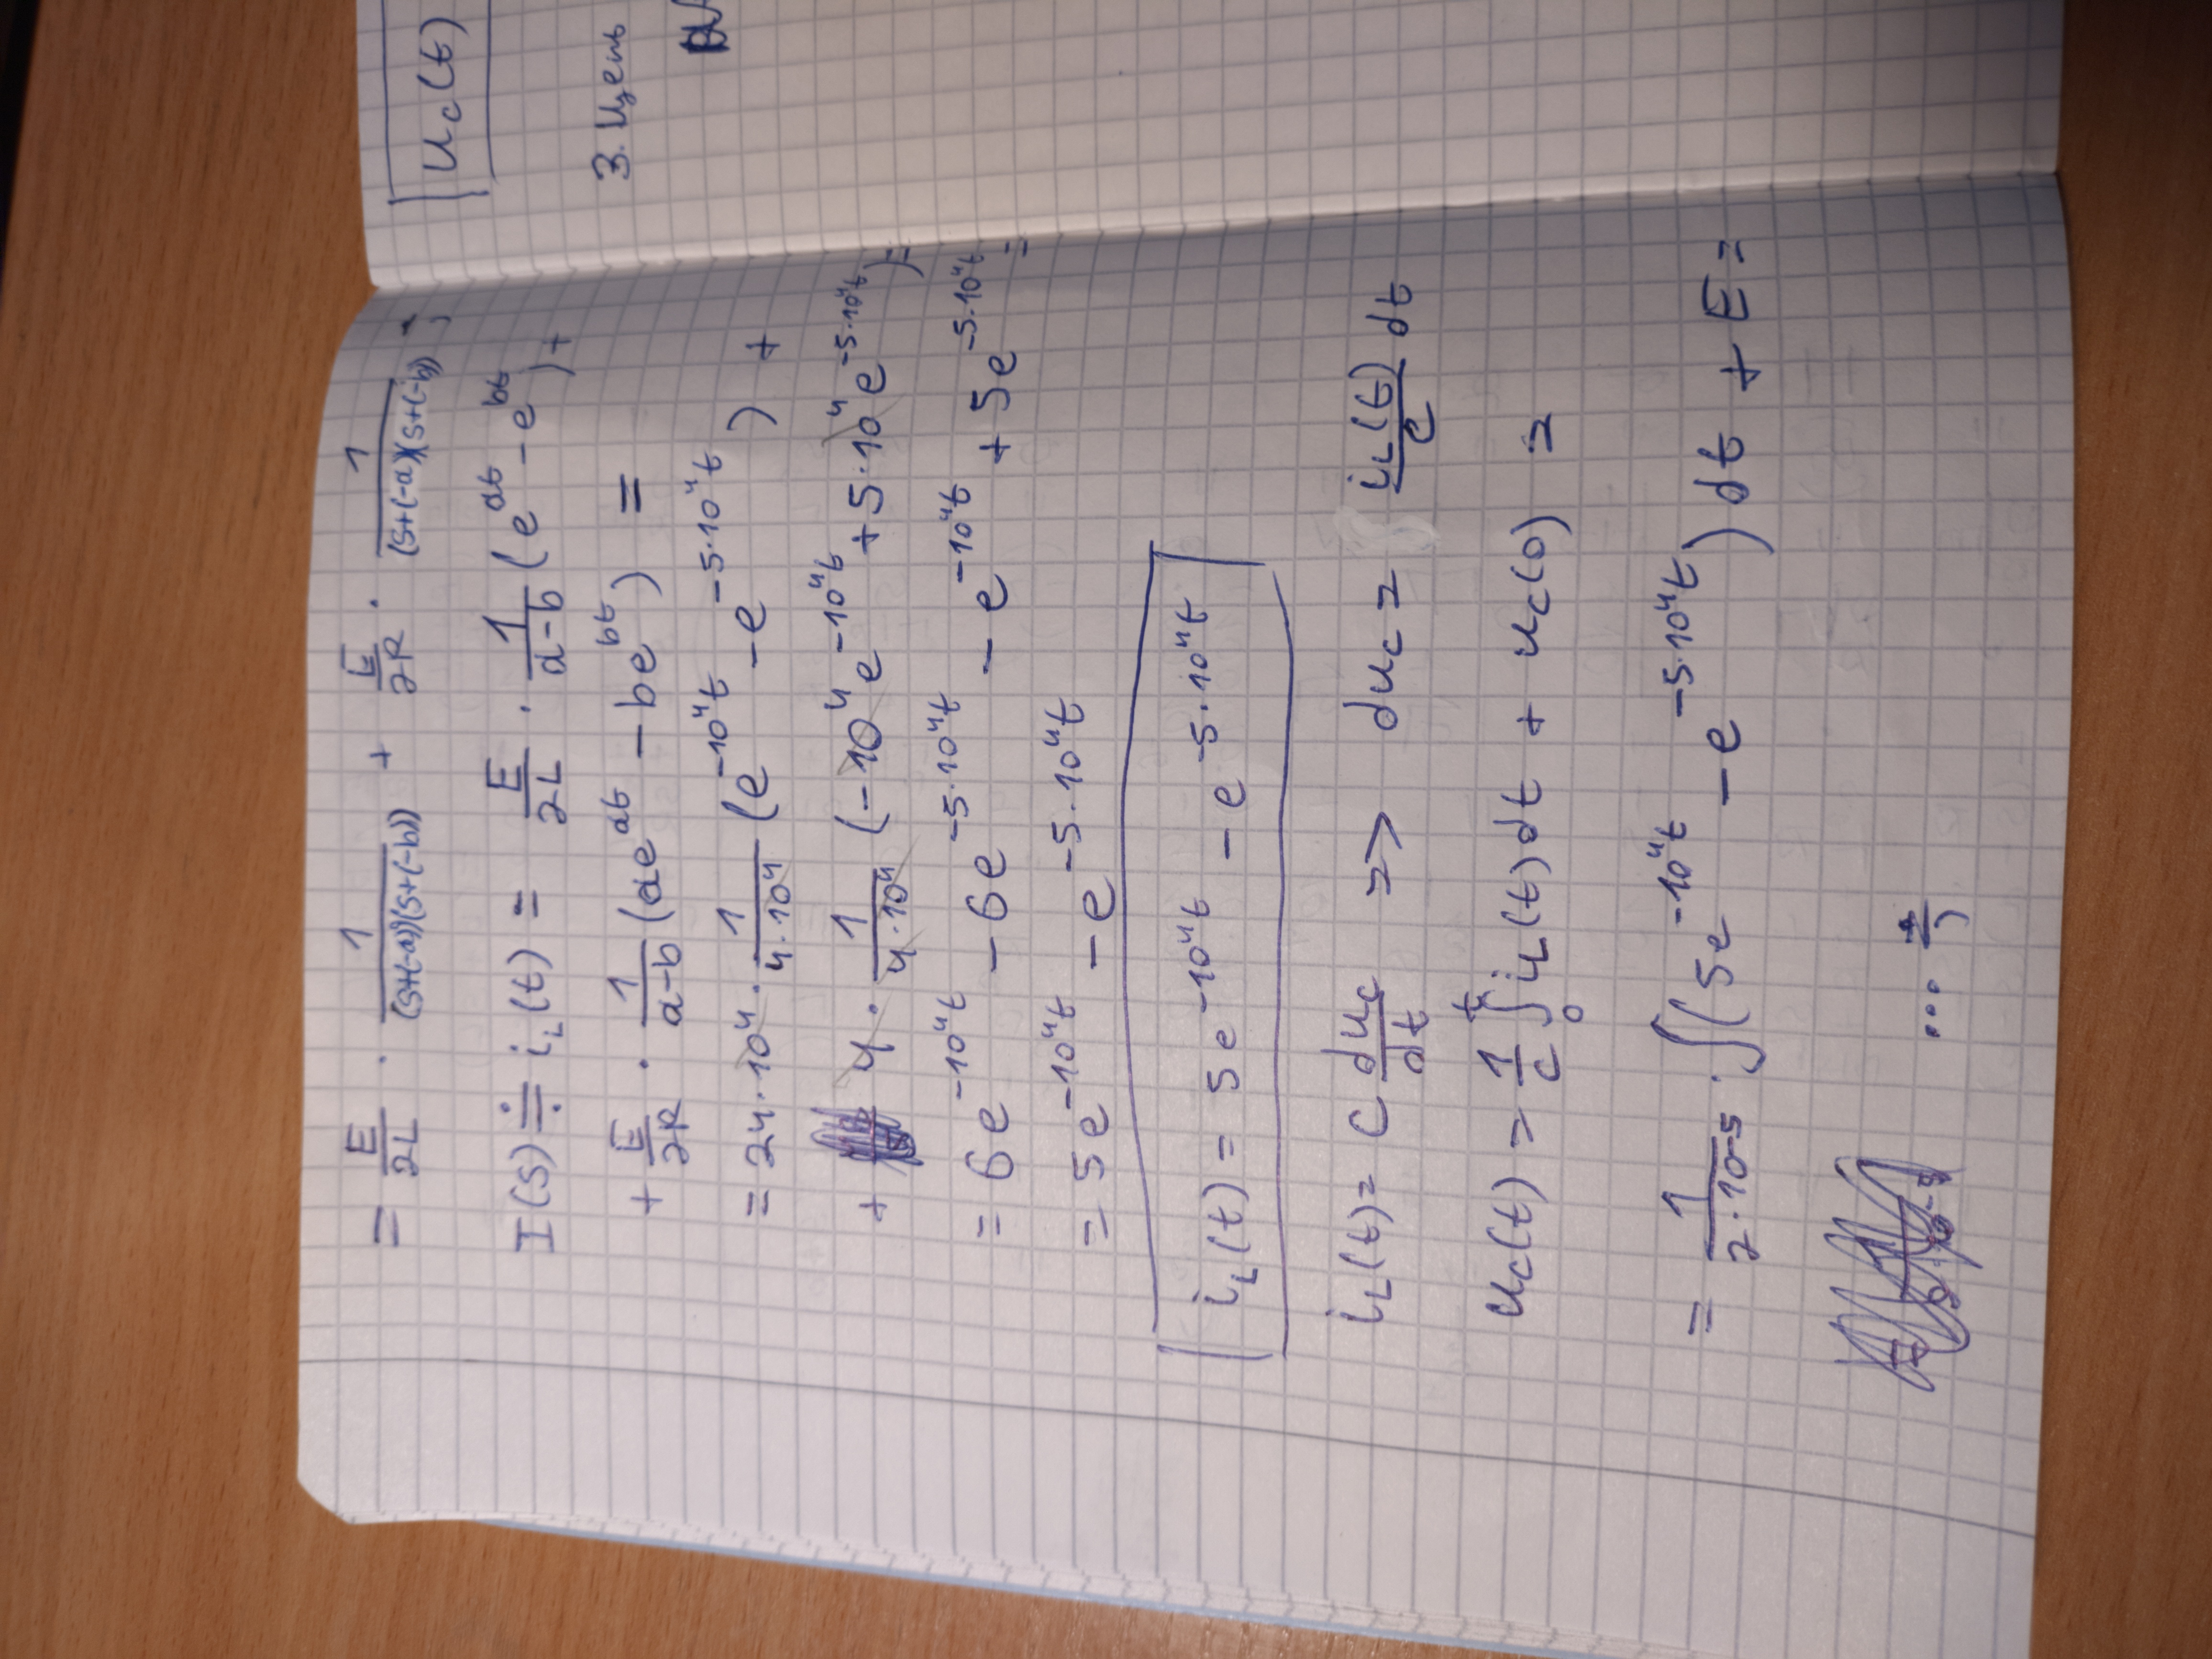 = E/2L · 1/((s+(-a))(s+(-b))) + E/2R · 1/((s+(-a)(s+(-b)) ;
I(s) ≑ i_L(t) = E/2L · 1/(a-b) (e^{at} - e^{bt}) +
+ E/2R · 1/(a-b) (ae^{at} - be^{bt}) =
= 24·10^4 · 1/(4·10^4) (e^{-10^4t} - e^{-5·10^4t}) +
+ 4 · 1/(4·10^4) (-10^4e^{-10^4t} + 5·10^4e^{-5·10^4t}) =
= 6e^{-10^4t} - 6e^{-5·10^4t} - e^{-10^4t} + 5e^{-5·10^4t} =
= 5e^{-10^4t} - e^{-5·10^4t}
i_L(t) = 5e^{-10^4t} - e^{-5·10^4t}
i_L(t) = C du_C/dt => du_C = i_L(t)/C dt
u_C(t) = 1/C ∫_0^t i_L(t)dt + u_C(0) =
= 1/(2·10^{-5}) · ∫(5e^{-10^4t} - e^{-5·10^4t}) dt + E =
...
u_C(t)
3. Цепь